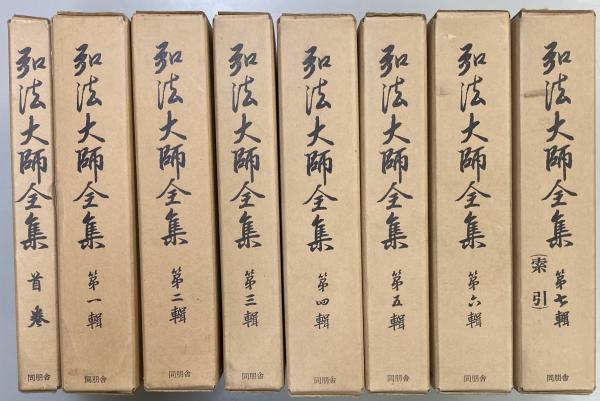 弘法大師全集
首巻
同朋舎
弘法大師全集
第一輯
同朋舎
弘法大師全集
第二輯
同朋舎
弘法大師全集
第三輯
同朋舎
弘法大師全集
第四輯
同朋舎
弘法大師全集
第五輯
同朋舎
弘法大師全集
第六輯
同朋舎
弘法大師全集
第七輯
(索引)
同朋舎